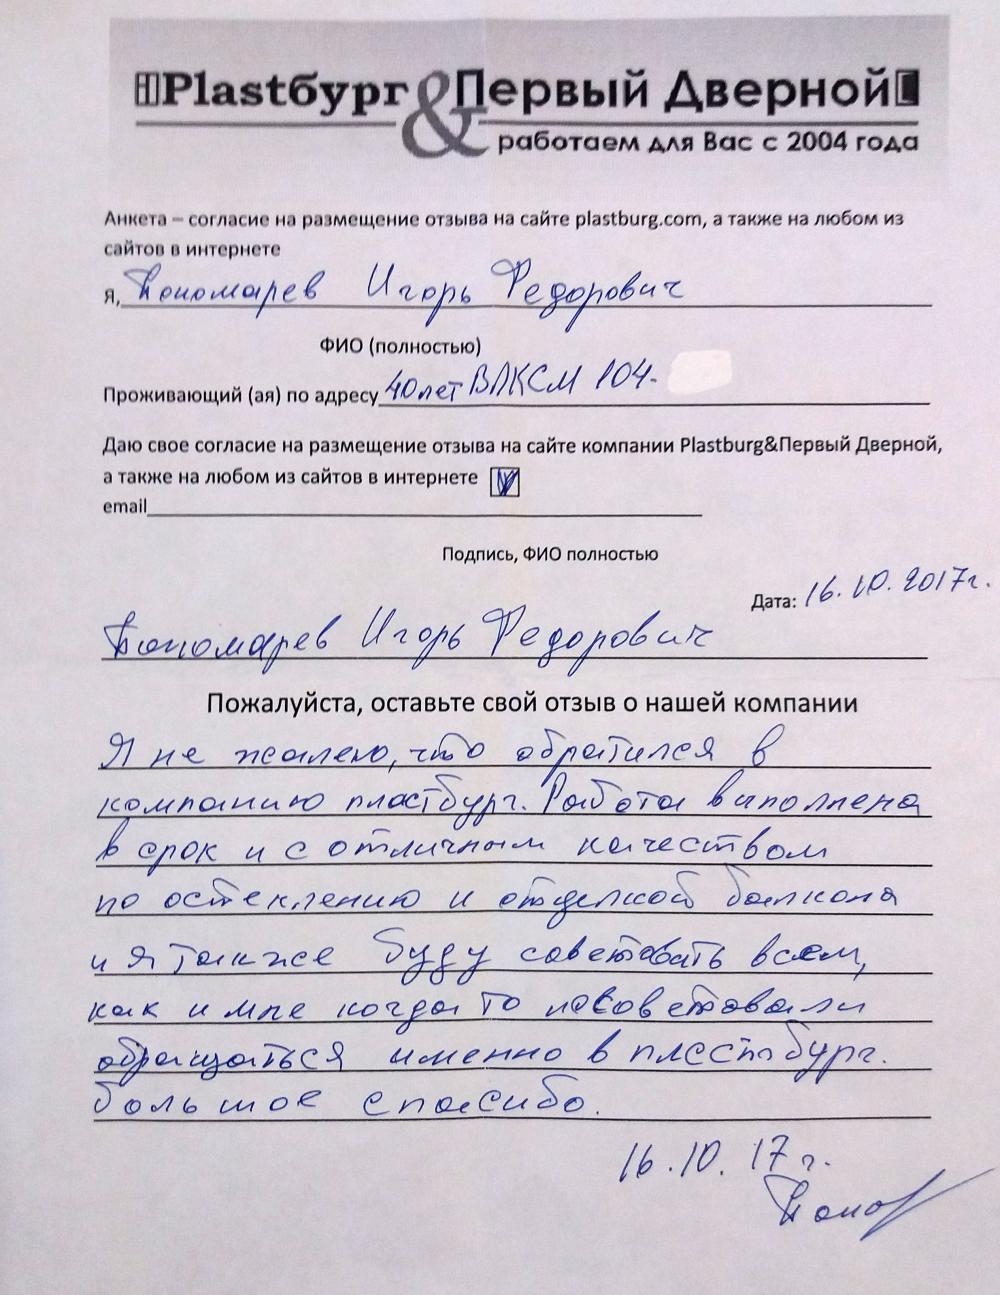 Plastбург & Первый Дверной
работаем для Вас с 2004 года
Анкета – согласие на размещение отзыва на сайте plastburg.com, а также на любом из
сайтов в интернете
Я, Пономарев Игорь Федорович
ФИО (полностью)
Проживающий (ая) по адресу 40 лет ВЛКСМ 104-
Даю свое согласие на размещение отзыва на сайте компании Plastburg&Первый Дверной,
а также на любом из сайтов в интернете
email
Подпись, ФИО полностью
Дата: 16.10.2017г.
Пономарев Игорь Федорович
Пожалуйста, оставьте свой отзыв о нашей компании
Я не жалею, что обратился в
компанию пластбург. Работа виполнена
в срок и с отличным качеством
по остеклению и отделкой балкона
и я также буду советовать всем,
как и мне когда то посоветовали
обращаться именно в пластбург.
большое спасибо.
16.10.17г.
Поном